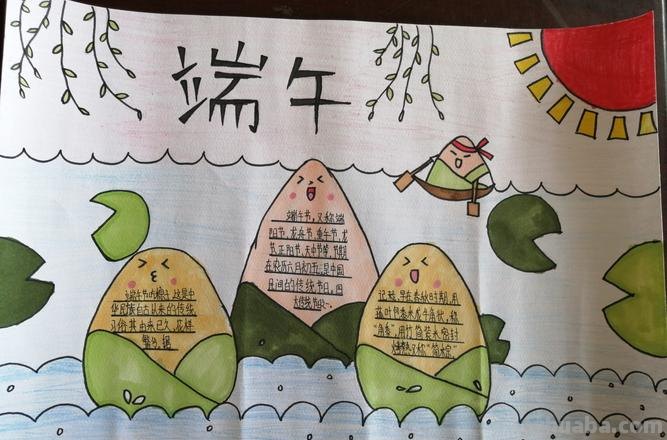 端午
端午节，又称端
阳节、龙舟节、重午节、龙
节、正阳节、天中节等，节期
在农历五月初五，是中国
民间的传统节日。四
大传统节日
端午节吃粽子，这是中
华民族自古以来的传统
习俗，其由来已久，花样
繁多。据
记载，早在春秋时期，用
菰叶包黍米成牛角状，称
"角黍"；用竹筒装米密封
烤熟，又称"筒米粽"